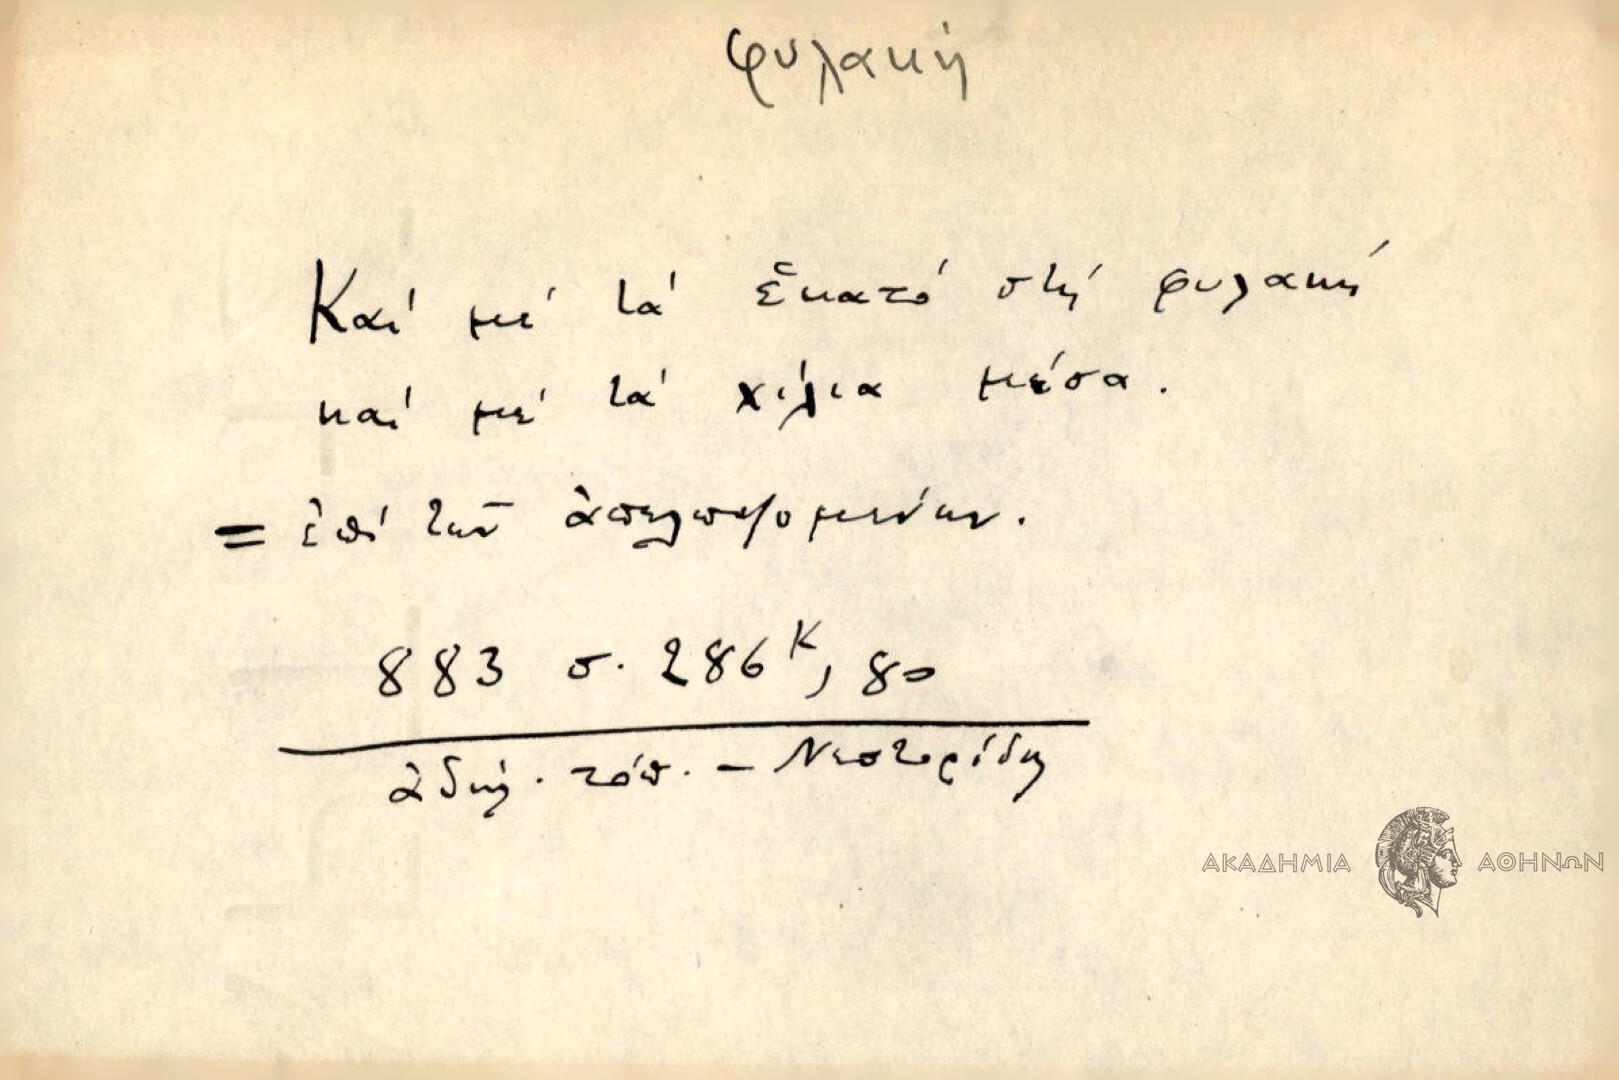 φυλακή
Καί μέ τά ἑκατό στή φυλακή
καί μέ τά χίλια μέσα.
= ἐπί τῶν ἀπελπιζομένων.
883 σ. 286κ, 80
ἀδήλ. τόπ. - Νεστορίδη
ΑΚΑΔΗΜΙΑ ΑΘΗΝΩΝ